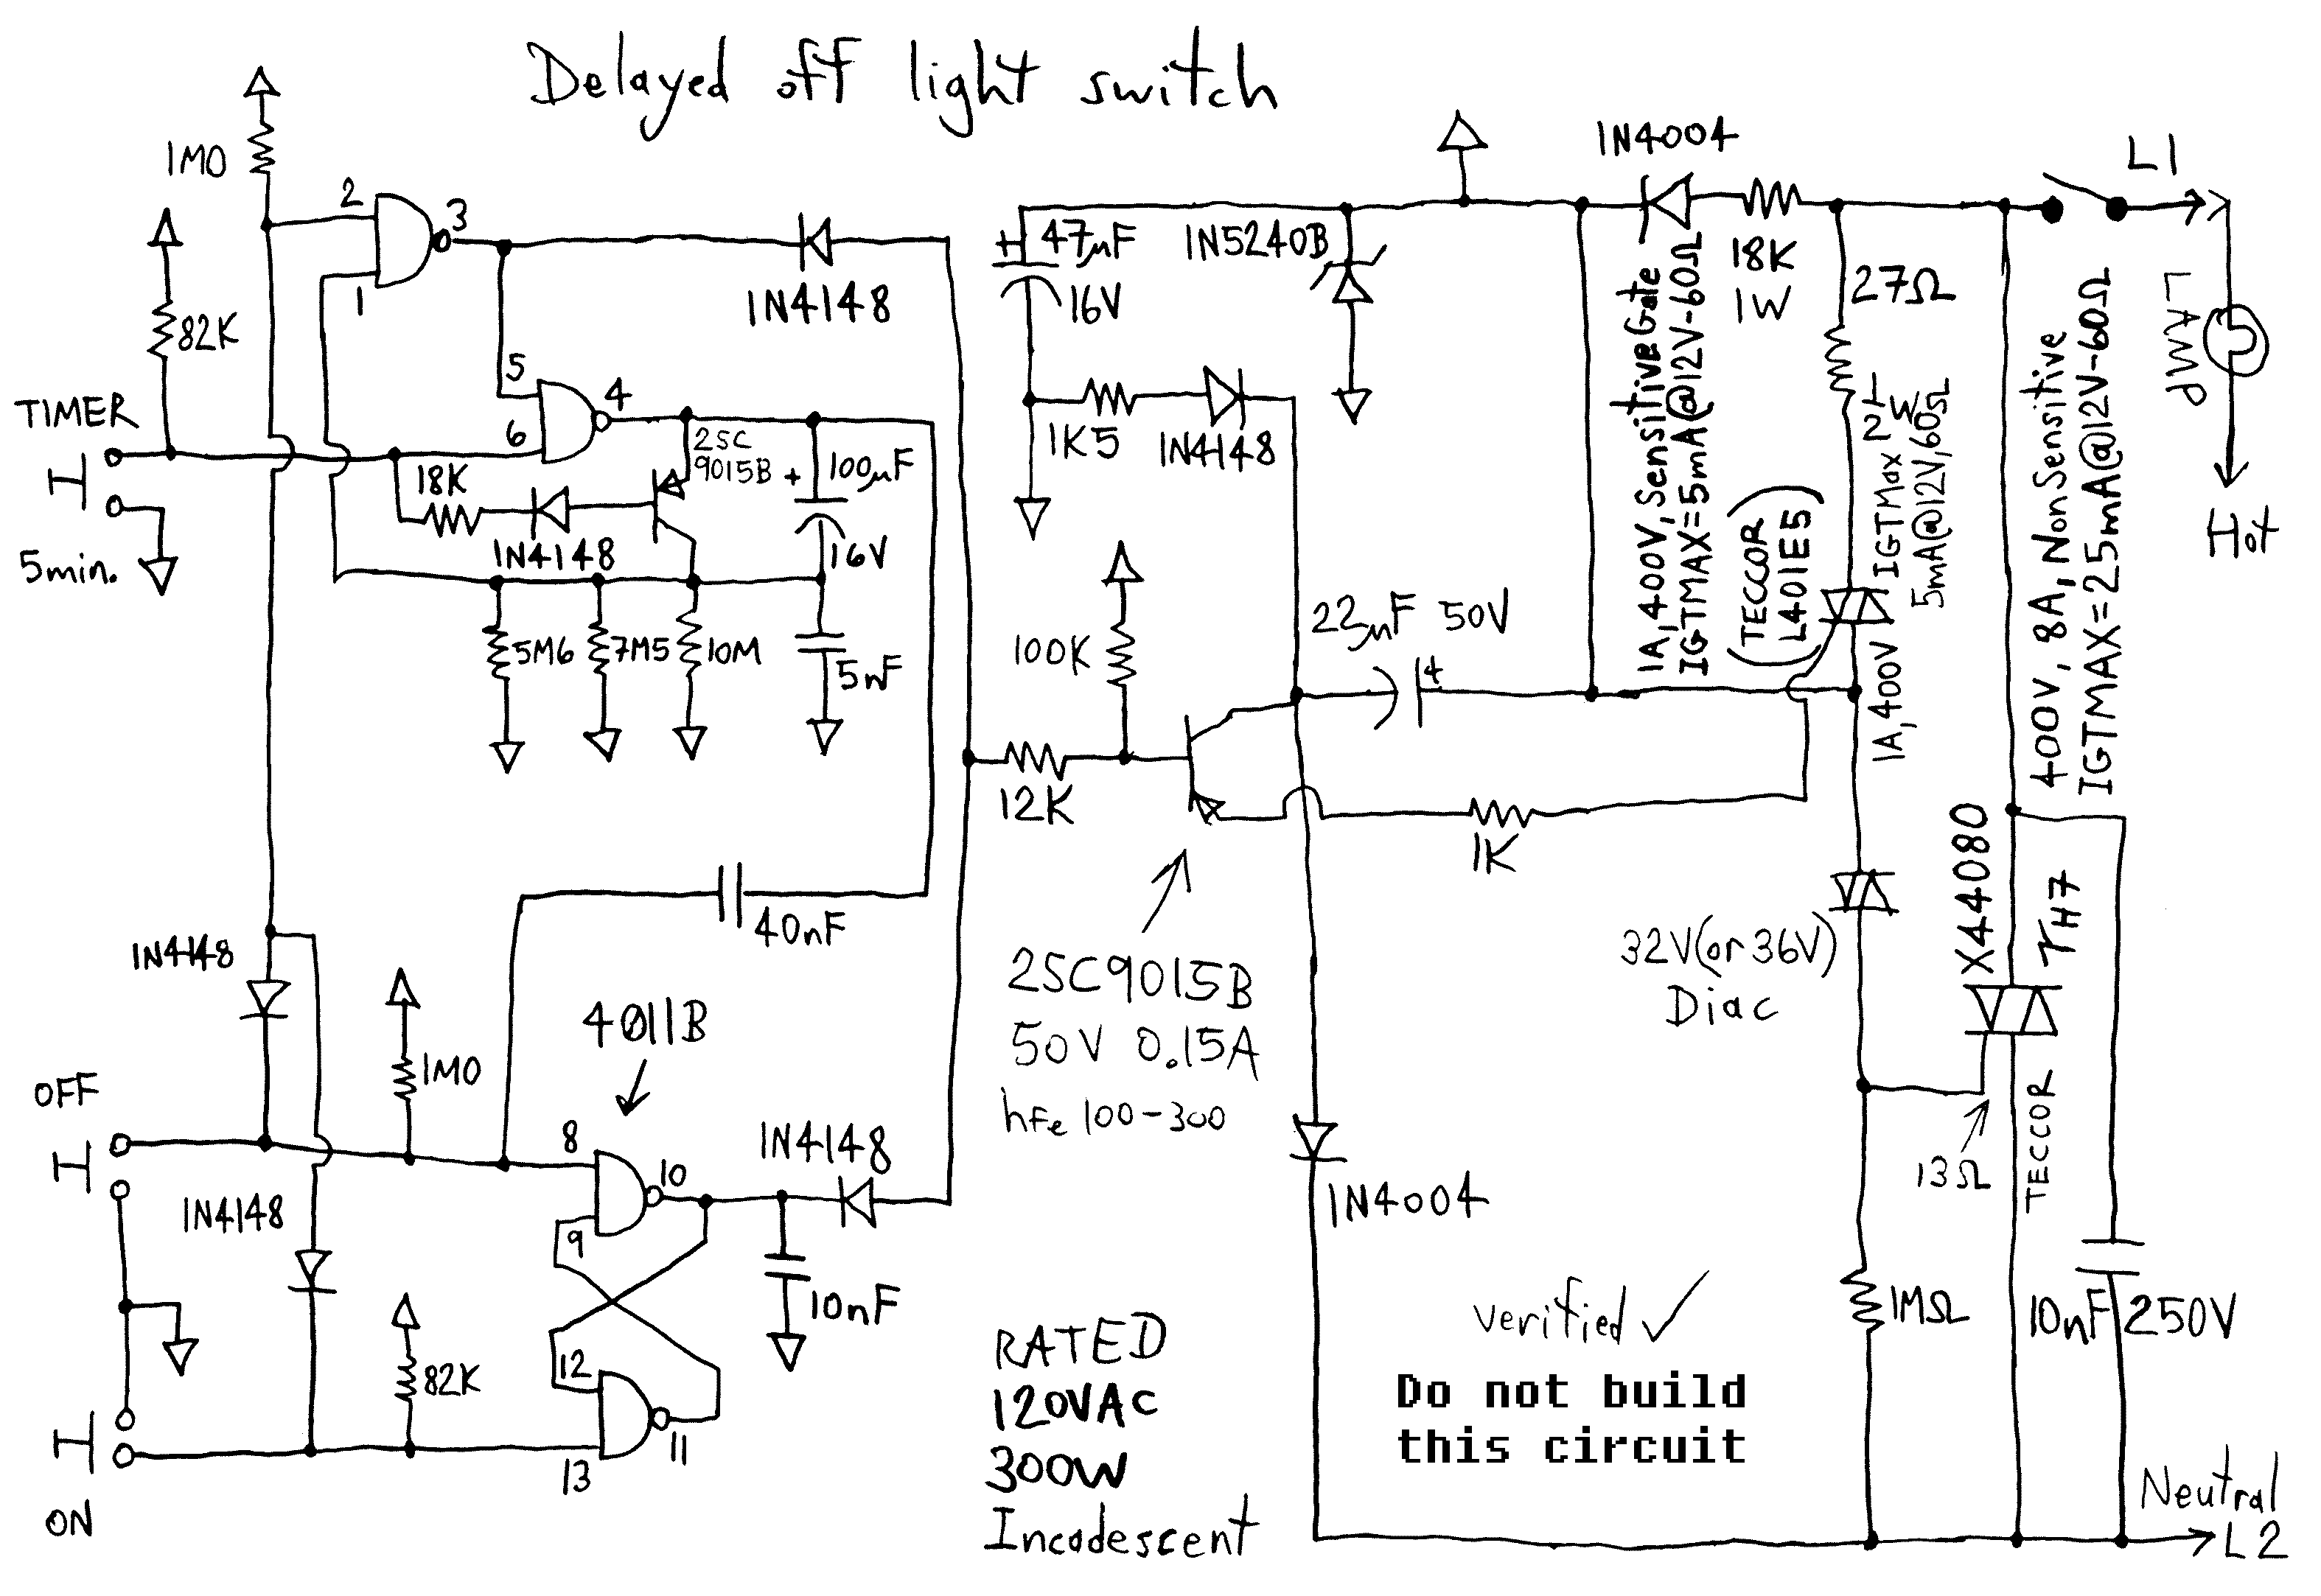 Delayed off light switch
1M0
2
3
1
82K
1N4148
TIMER
5min.
5
4
6
2SC
9015B
+
100µF
16V
18K
1N4148
5M6
7M5
10M
5nF
40nF
1N4148
OFF
1M0
4011B
8
10
9
1N4148
1N4148
10nF
12
82K
11
13
ON
+
47µF
16V
1N5240B
1K5
1N4148
100K
12K
22µF 50V
+
1K
2SC9015B
50V 0.15A
hfe 100-300
1N4004
1N4004
18K
1W
27Ω
1/2 W
1A, 400V, Sensitive Gate
IGTMAX=5mA@12V-60Ω
(TECCOR
L401E5)
IGTMax
5mA@12V,60Ω
1A, 400V
32V (or 36V)
Diac
X44080
rH7
TECCOR
13Ω
400V, 8A, NonSensitive
IGTMAX=25mA@12V-60Ω
L1
LAMP
Hot
1MΩ
10nF 250V
Neutral
L2
RATED
120VAC
300W
Incadescent
verified ✓
Do not build
this circuit